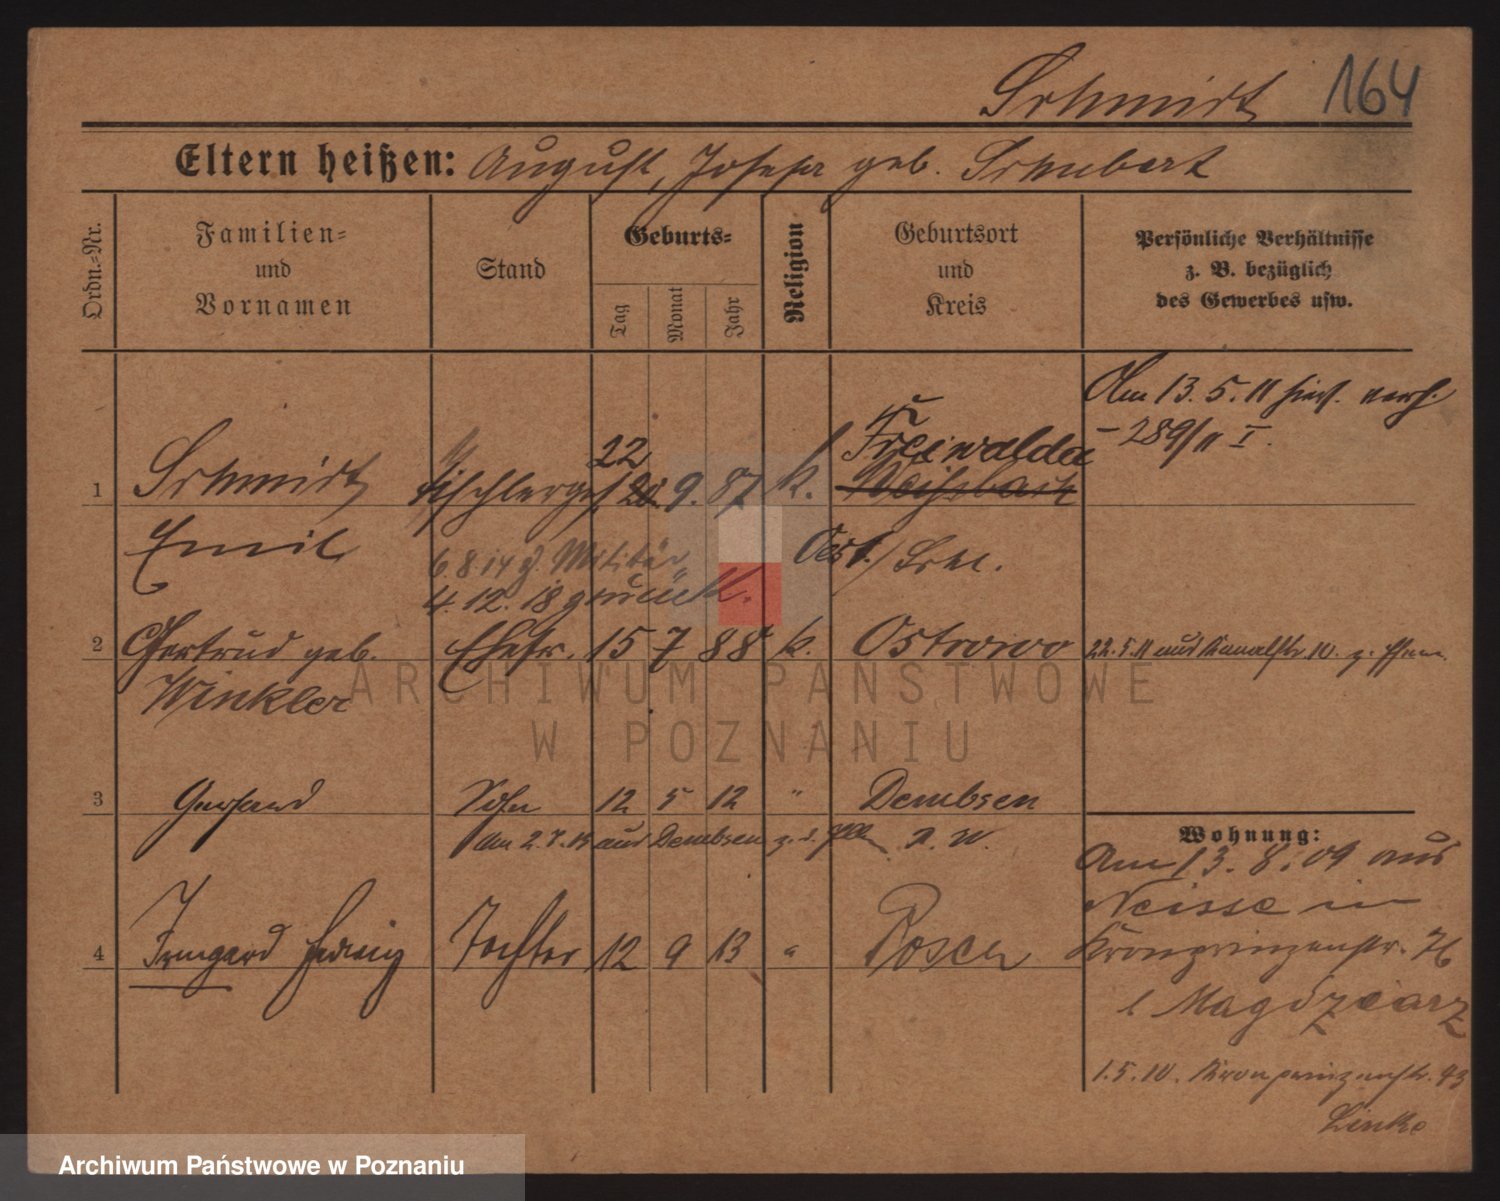 Schmidt 164
Eltern heißen: August, Josefa geb. Schubert
Ordn.=Nr.
Familien=
und
Vornamen
Stand
Geburts=
Tag
Monat
Jahr
Religion
Geburtsort
und
Kreis
Persönliche Verhältnisse
z. B. bezüglich
des Gewerbes usw.
Am 13. 5. 11 hier. verh.
- 289/11 I.
1 Schmidt Tischlerges. 22 20. 9. 87 k. Freiwaldau
Emil Oest./Schl.
6.8.14 z. Militär
4. 12. 18 zurück.
2 Gertrud geb. Ehefr. 15 7 88 k. Ostrowo 22.5.11 aus Kanalstr. 10. z.
Winkler
3 Gerhard Sohn 12 5 12 " Dembsen
Am 2.7.13 aus Dembsen z. d. a. W.
4 Irmgard Hedwig Tochter 12 9 13 " Posen
Wohnung:
Am 13. 8. 09 aus
Neisse in
Kronprinzenstr. 76
b Magdziarz
1.5.10. Kronprinzenstr. 93
Linke
ARCHIWUM PAŃSTWOWE
W POZNANIU
Archiwum Państwowe w Poznaniu